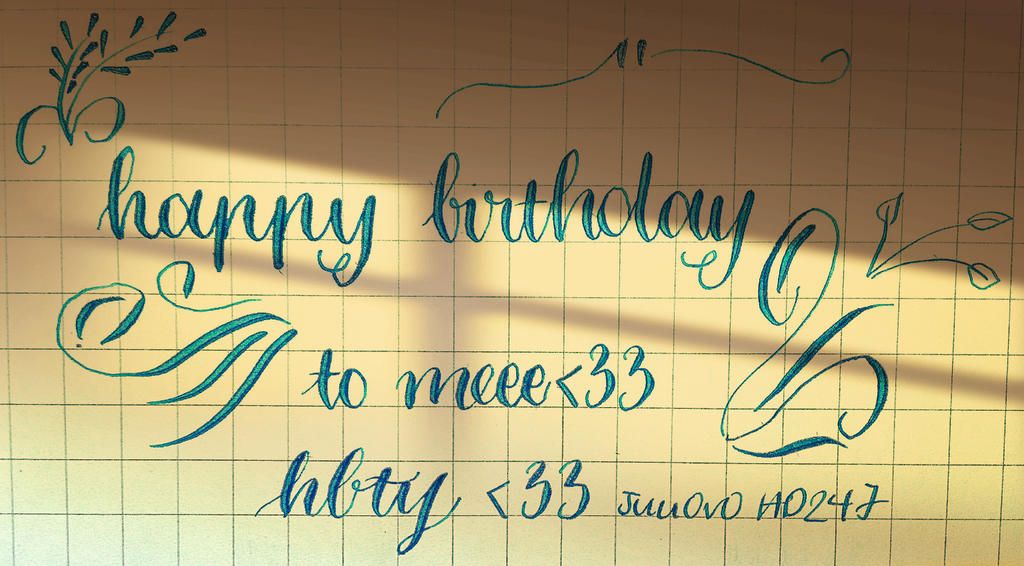 happy birthday
to meee<33
hbty <33 JuuOvO HD247